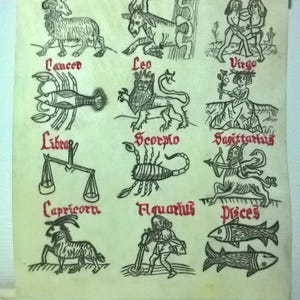 Cancer Leo Virgo
Libra Scorpio Sagittarius
Capricorn Aquarius Pisces